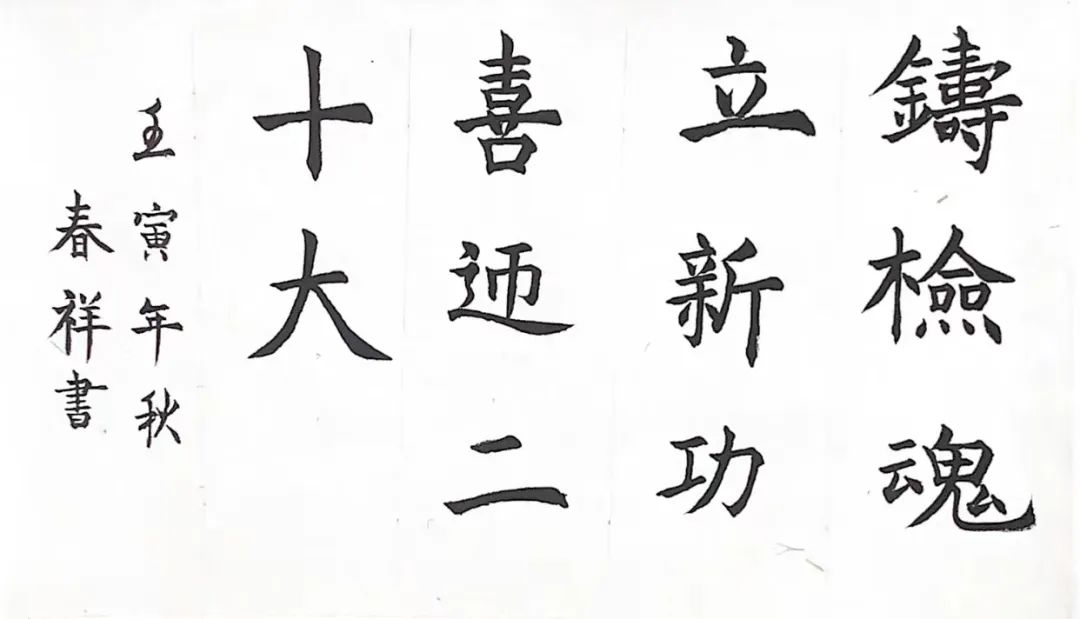 鑄檢魂
立新功
喜迊二
十大
壬寅年秋
春祥書